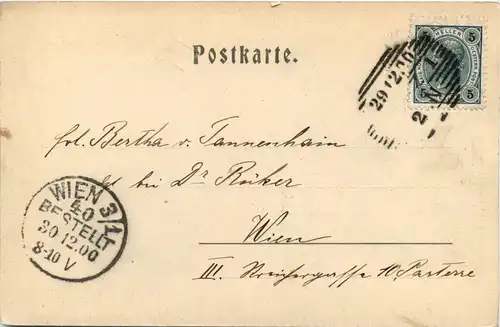 Postkarte.
5 HELLER 5
5 5
29 12.00
frl. Bertha v. Tannenhain
bei Dr Rüker
Wien
III. 10 Parterre
WIEN 3/1
40
BESTELLT
30 12.00
8-10 V